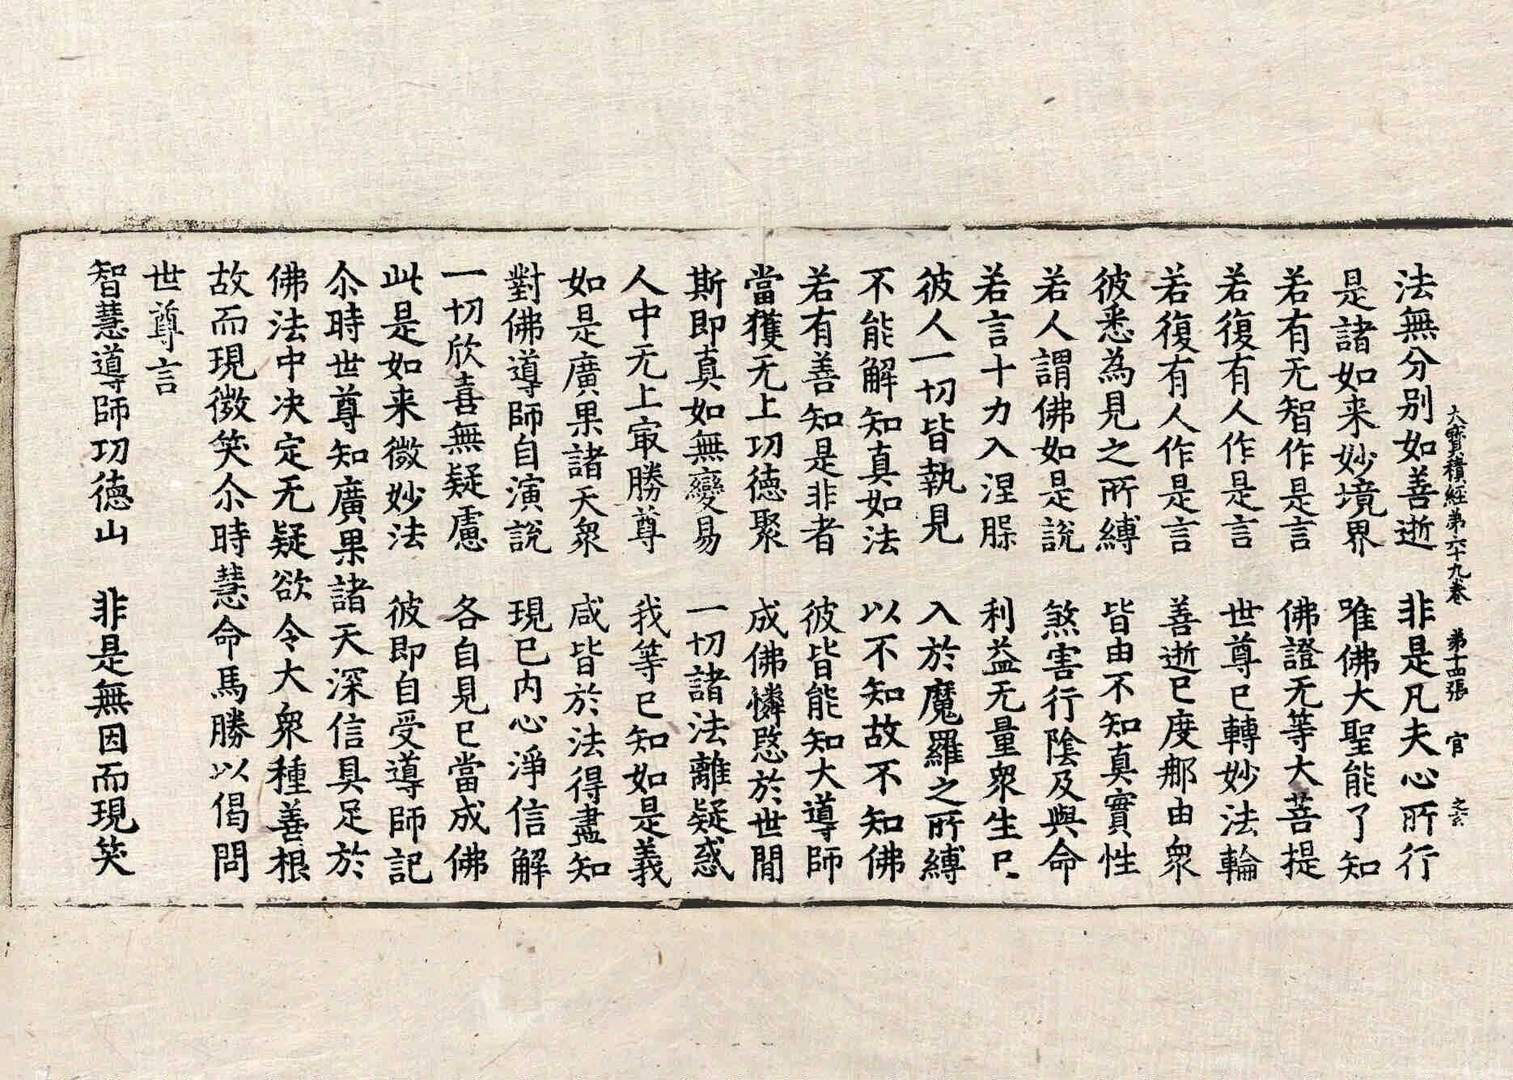 大寶積經第六十九卷 第十四張 官
法無分別如善逝 非是凡夫心所行
是諸如来妙境界 唯佛大聖能了知
若有无智作是言 佛證无等大菩提
若復有人作是言 世尊已轉妙法輪
若復有人作是言 善逝已度郍由衆
彼悉為見之所縛 皆由不知真實性
若人謂佛如是說 煞害行陰及與命
若言十力入涅𣵀 利益无量衆生已
彼人一切皆執見 入於魔羅之所縛
不能解知真如法 以不知故不知佛
若有善知是非者 彼皆能知大導師
當獲无上功徳聚 成佛憐愍於世間
斯即真如無變易 一切諸法離疑惑
人中无上㝡勝尊 我等已知如是義
如是廣果諸天衆 咸皆於法得盡知
對佛導師自演說 現已内心淨信解
一切欣喜無疑慮 各自見已當成佛
此是如来微妙法 彼即自受導師記
尒時世尊知廣果諸天深信具足於
佛法中决定无疑欲令大衆種善根
故而現微笑尒時慧命馬勝以偈問
世尊言
智慧導師功徳山 非是無因而現笑